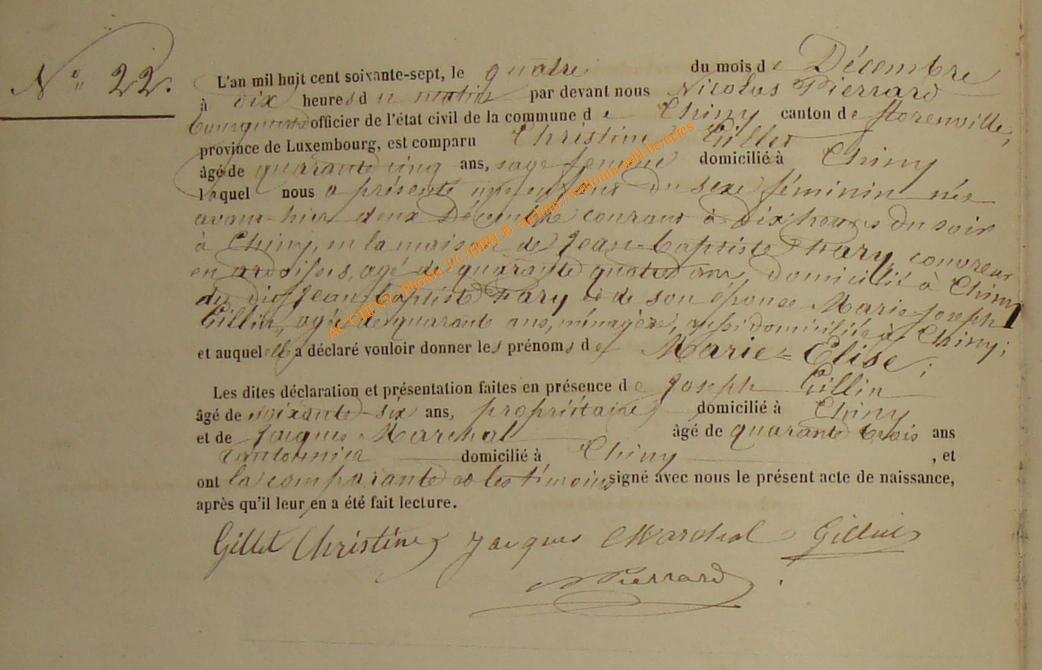 N° 22.
L'an mil huit cent soixante-sept, le quatre du mois de Décembre
à dix heures du matin par devant nous Nicolas Pierrard
Bourgmestre officier de l'état civil de la commune de Chiny canton de Florenville,
province de Luxembourg, est comparu Christine Gillet
âgé de quarante cinq ans, sage femme domicilié à Chiny
laquel nous a présenté un enfant du sexe féminin née
avant-hier deux Décembre courant à dix heures du soir
à Chiny, en la maison de Jean-Baptiste Hary, couvreur
en ardoises, agé de quarante quatre ans, domicilié à Chiny
du dit Jean-Baptiste Hary et de son épouse Marie-Joseph
Gillin, agée de quarante ans, ménagère, aussi domiciliée à Chiny;
et auquel elle a déclaré vouloir donner les prénoms de Marie-Elise;
Les dites déclaration et présentation faites en présence de Joseph Gillin
âgé de soixante-six ans, propriétaire domicilié à Chiny
et de Jacques Marchal âgé de quarante trois ans
cantonnier domicilié à Chiny , et
ont la comparante et les témoins signé avec nous le présent acte de naissance,
après qu'il leur en a été fait lecture.
Gillet Christine Jacques Marchal Gillin
N Pierrard